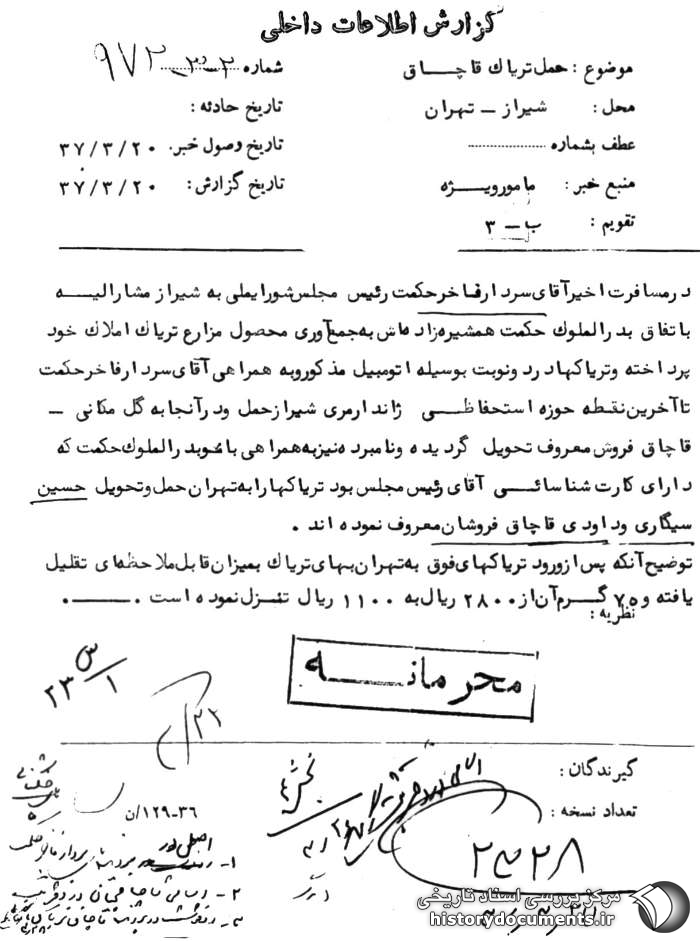 گزارش اطلاعات داخلی
موضوع : حمل تریاک قاچاق
شماره ۹۷۲
محل : شیراز - تهران
تاریخ حادثه :
عطف بشماره
تاریخ وصول خبر: ۳۷/۳/۲۰
منبع خبر : مامور ویژه
تاریخ گزارش: ۳۷/۳/۲۰
تقویم : ب - ۳
درمسافرت اخیر آقای سردار فاخر حکمت رئیس مجلس شورایملی به شیراز مشارالیه
باتفاق بدرالملوک حکمت همشیره زاده اش به جمع آوری محصول مزارع تریاک املاک خود
پرداخته و تریاکها در دو نوبت بوسیله اتومبیل مذکور و به همراهی آقای سردار فاخر حکمت
تا آخرین نقطه حوزه استحفاظی ژاندارمری شیراز حمل و در آنجا به گل مکانی -
قاچاق فروش معروف تحویل گردیده و نامبرده نیز به همراهی بانو بدرالملوک حکمت که
دارای کارت شناسائی آقای رئیس مجلس بود تریاکها را به تهران حمل و تحویل حسین
سیگاری و داودی قاچاق فروشان معروف نموده اند .
توضیح آنکه پس از ورود تریاکهای فوق به تهران بهای تریاک بمیزان قابل ملاحظه ای تقلیل
یافته و ۷۰ گرم آن از ۲۸۰۰ ریال به ۱۱۰۰ ریال تنزل نموده است .
نظریه :
محرمانه
گیرندگان :
تعداد نسخه :
۱۲۹-۳۶/ن
مرکز بررسی اسناد تاریخی
historydocuments.ir